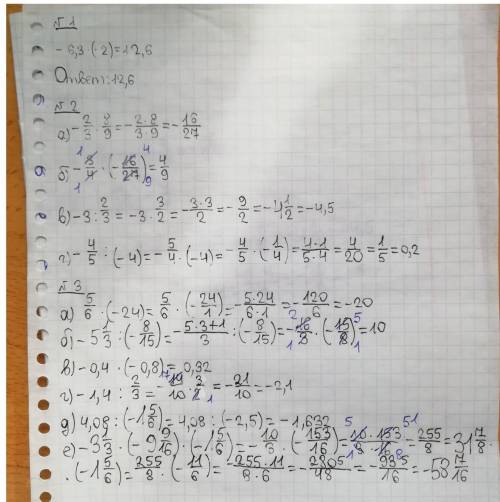 № 1
- 6,3 · (-2) = 12,6
Ответ: 12,6
№ 2
а) -2/3 · 8/9 = -2·8/3·9 = -16/27
в) -3 : 2/3 = -3 · 3/2 = -3·3/2 = -9/2 = -4 1/2 = -4,5
г) -4/5 : (-4) = -5/4 · (-4) = -4/5 · (-1/4) = 4·1/5·4 = 4/20 = 1/5 = 0,2
№ 3
а) 5/6 · (-24) = 5/6 · (-24/1) = -5·24/6·1 = -120/6 = -20
б) -5 1/3 : (-8/15) = -5·3+1/3 : (-8/15) = 10
в) -0,4 · (-0,8) = 0,32
г) -1,4 : 2/3 = = -21/10 = -2,1
д) 4,08 : (-1 5/6) = 4,08 : (-2,5) = -1,632
е) -3 1/3 · (-9 9/16) · (-1 5/6) = -10/3 · (-153/16) = 255/8 = 31 7/8
· (-1 5/6) = 255/8 · (-11/6) = -255·11/8·6 = -2805/48 = -935/16 = -58 7/16